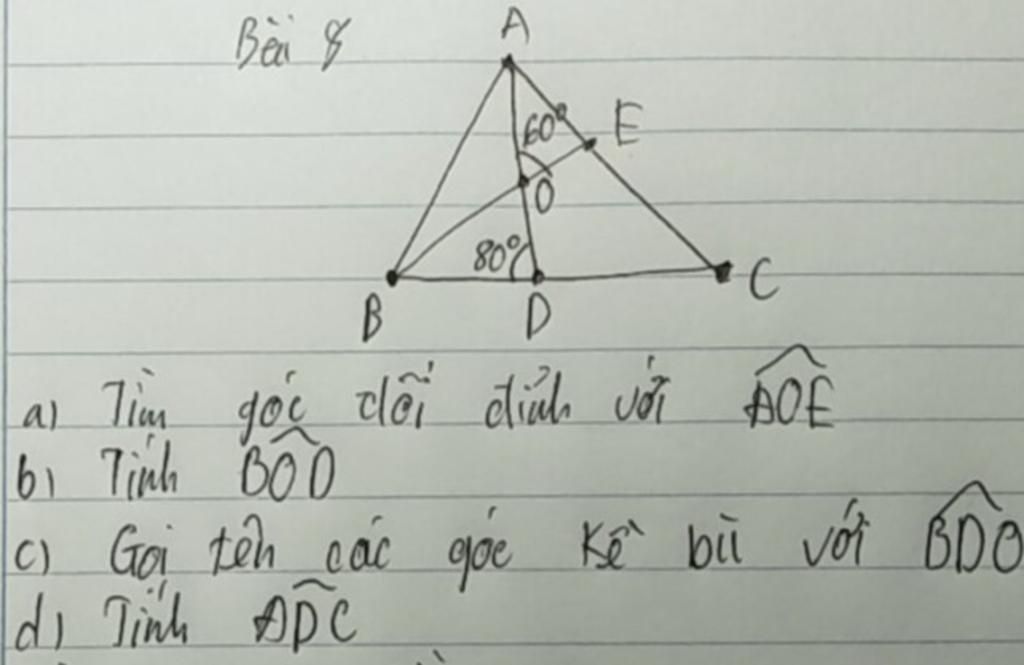 Bài 8
A
60°
E
O
80°
B
D
C
a) Tìm góc đối đỉnh với AOE
b) Tính BOD
c) Gọi tên các góc kề bù với BDO
d) Tính ADC